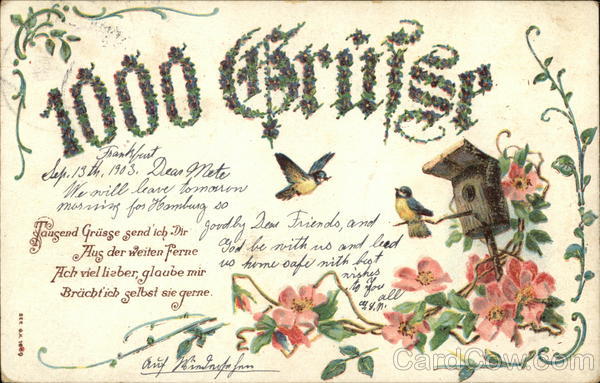 1000 Grüsse
Frankfurt
Sep. 13th, 1903. Dear Mete
We will leave tomorrow
morning for Hamburg so
good by Dear Friends, and
God be with us and lead
us home safe with best
wishes
to You
all
Tausend Grüsse send ich Dir
Aus der weiten Ferne
Ach viel lieber, glaube mir
Brächt' ich selbst sie gerne.
Auf Wiedersehen
SER. G.K. 1989
CardCow.com